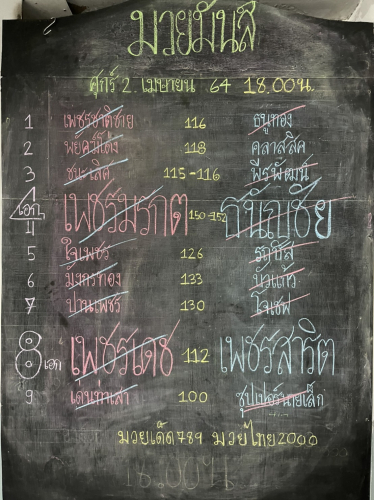 มวยมันส์
ศุกร์ 2 เมษายน 64 18.00น.
1 เพชรชาติชาย 116 ธนูทอง
2 พยัคฆ์โต้ง 118 คลาสสิค
3 ชนะเลิศ 115-116 พีรพัฒน์
4 เอก เพชรมรกต 150-152 ธนัญชัย
5 ใจเพชร 126
6 มังกรทอง 133 บัวแก้ว
7 ปานเพชร 130 โจเซฟ
8 เอก เพชรเดช 112 เพชรสาริต
9 เด่นท่าเสา 100 ซุปเปอร์นายเล็ก
มวยเด็ด789 มวยไทย2000